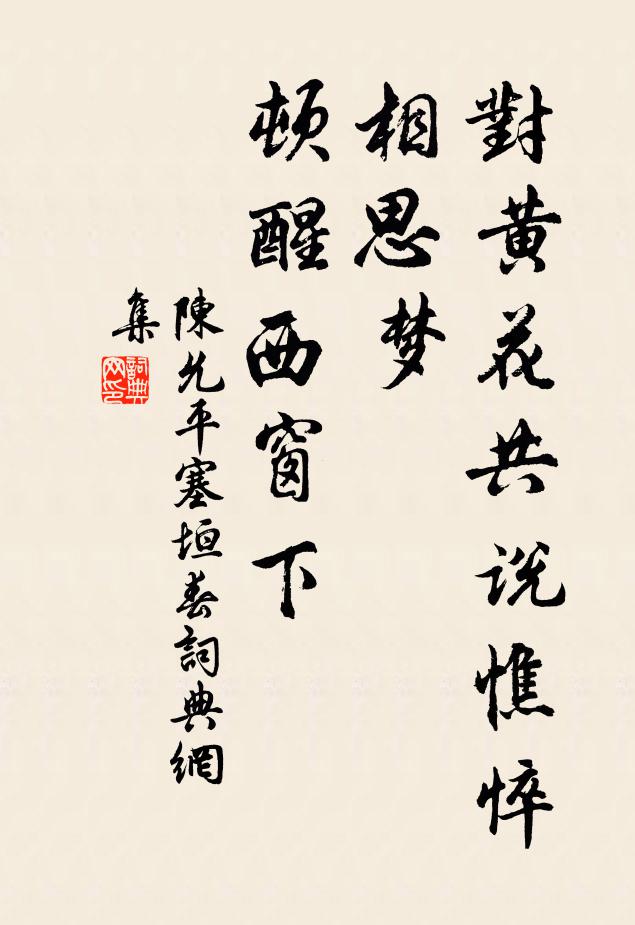 對黄花共说憔悴
相思梦
頓醒西窗下
陳允平塞垣春詞典網
集
詞典
网印